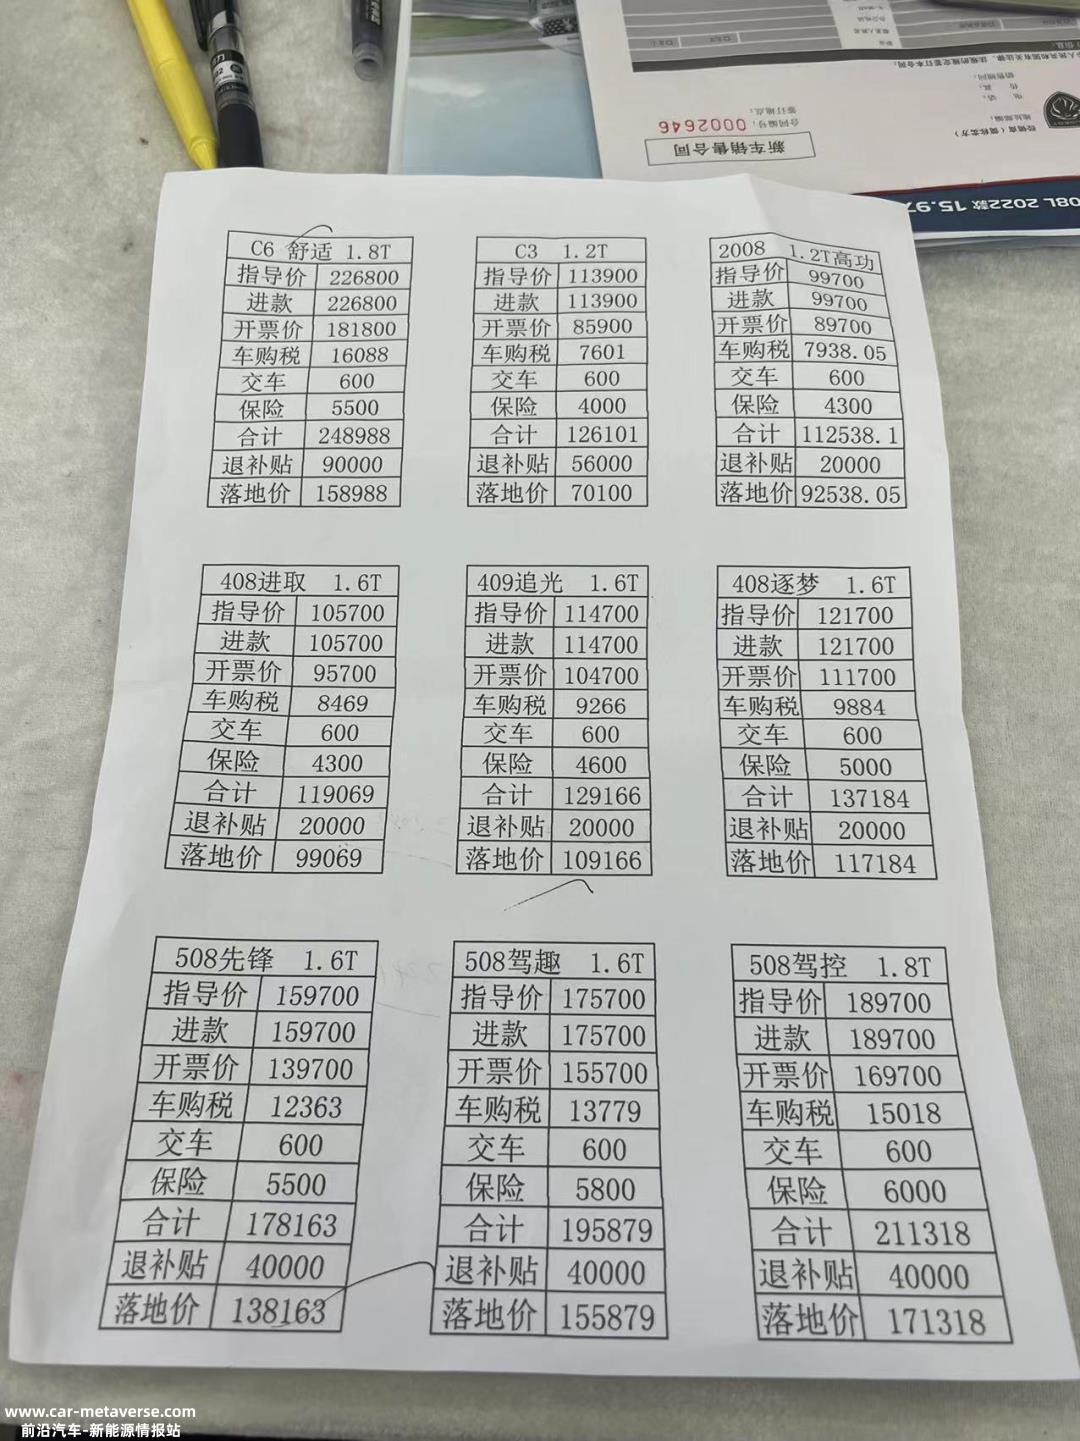 08L 2022款 15.97
新车销售合同
合同编号: 0002646
签订地点:
地址邮编:
C6 舒适 1.8T
指导价 226800
进款 226800
开票价 181800
车购税 16088
交车 600
保险 5500
合计 248988
退补贴 90000
落地价 158988
C3 1.2T
指导价 113900
进款 113900
开票价 85900
车购税 7601
交车 600
保险 4000
合计 126101
退补贴 56000
落地价 70100
2008 1.2T高功
指导价 99700
进款 99700
开票价 89700
车购税 7938.05
交车 600
保险 4300
合计 112538.1
退补贴 20000
落地价 92538.05
408进取 1.6T
指导价 105700
进款 105700
开票价 95700
车购税 8469
交车 600
保险 4300
合计 119069
退补贴 20000
落地价 99069
409追光 1.6T
指导价 114700
进款 114700
开票价 104700
车购税 9266
交车 600
保险 4600
合计 129166
退补贴 20000
落地价 109166
408逐梦 1.6T
指导价 121700
进款 121700
开票价 111700
车购税 9884
交车 600
保险 5000
合计 137184
退补贴 20000
落地价 117184
508先锋 1.6T
指导价 159700
进款 159700
开票价 139700
车购税 12363
交车 600
保险 5500
合计 178163
退补贴 40000
落地价 138163
508驾趣 1.6T
指导价 175700
进款 175700
开票价 155700
车购税 13779
交车 600
保险 5800
合计 195879
退补贴 40000
落地价 155879
508驾控 1.8T
指导价 189700
进款 189700
开票价 169700
车购税 15018
交车 600
保险 6000
合计 211318
退补贴 40000
落地价 171318
www.car-metaverse.com
前沿汽车-新能源情报站